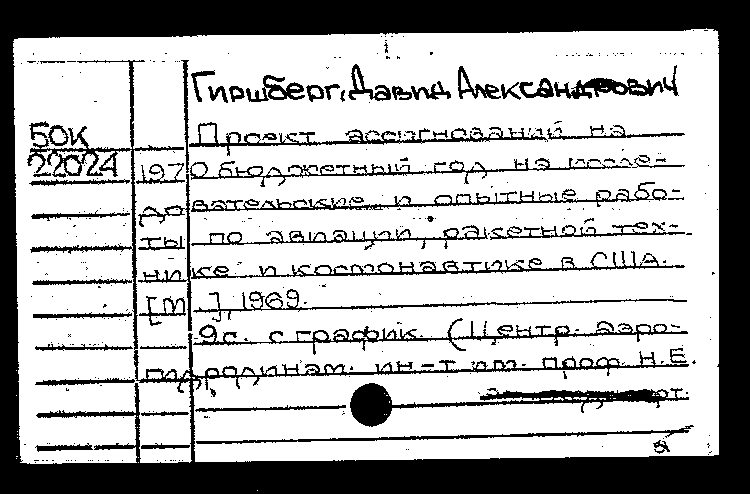 Гиршберг, Давид Александрович
БОК
22024
Проект ассигнований на
1970 бюджетный год на иссле-
довательские и опытные рабо-
ты по авиации, ракетной тех-
нике и космонавтике в США.
[М ], 1969.
9с. с график. (Центр. аэро-
гидродинам. ин-т им. проф. Н.Е.